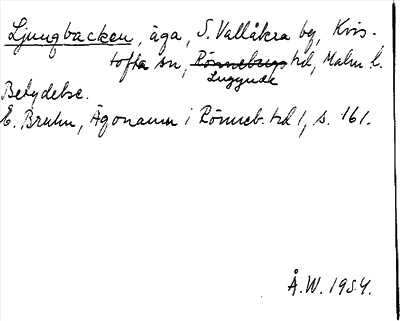 Ljungbacken, äga, S. Vallåkra by, Kvis-
tofta sn, Rönnebergs hd, Malm l.
Luggude
Betydelse.
E. Bruhn, Ägonamn i Rönneb. hd 1, s. 161.
Å.W. 1954.